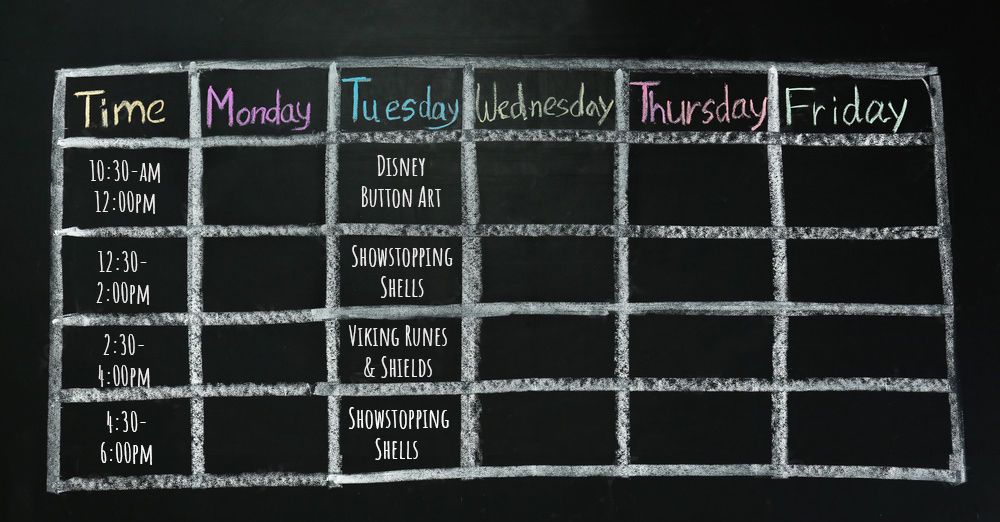 Time Monday Tuesday Wednesday Thursday Friday
10:30-AM
12:00PM
Disney
Button Art
12:30-
2:00PM
Showstopping
Shells
2:30-
4:00PM
Viking Runes
& Shields
4:30-
6:00PM
Showstopping
Shells